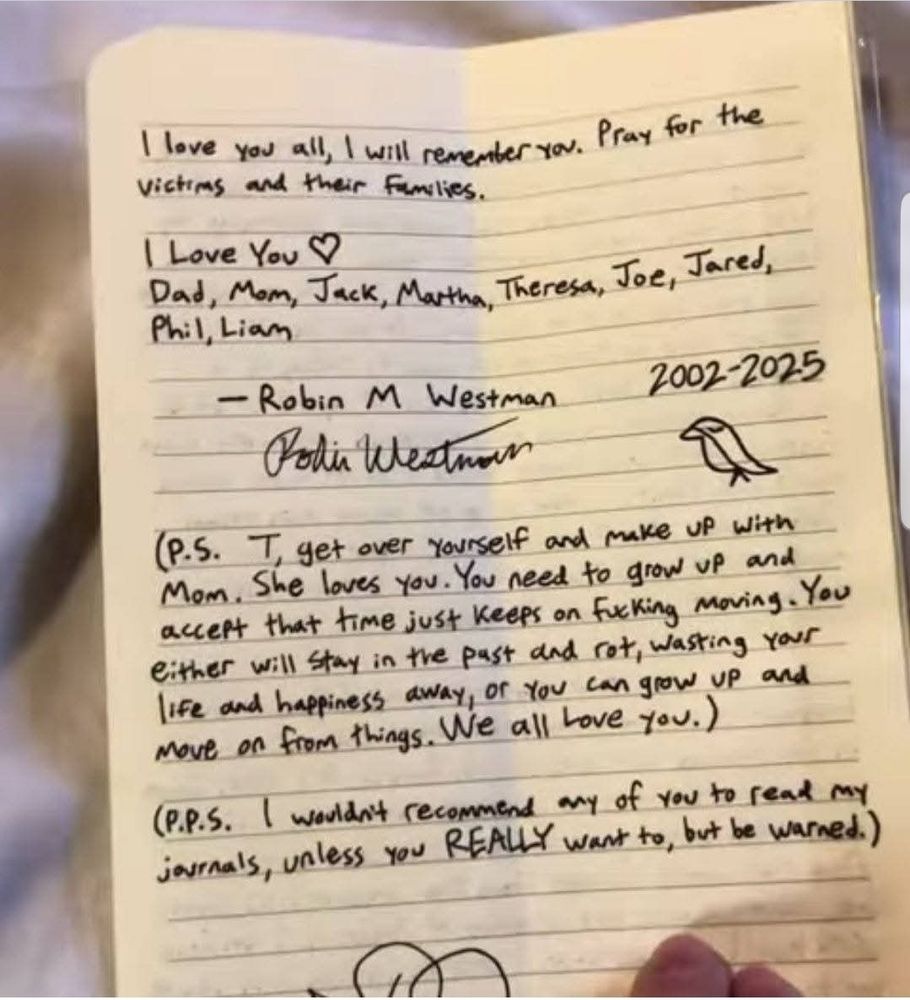 I love you all, I will remember you. Pray for the
victims and their families.
I Love You ♡
Dad, Mom, Jack, Martha, Theresa, Joe, Jared,
Phil, Liam
— Robin M Westman
2002-2025
Robin Westman
(P.S. T, get over yourself and make up with
Mom. She loves you. You need to grow up and
accept that time just keeps on fucking moving. You
either will stay in the past and rot, wasting your
life and happiness away, or you can grow up and
move on from things. We all Love you.)
(P.P.S. I wouldn't recommend any of you to read my
journals, unless you REALLY want to, but be warned.)